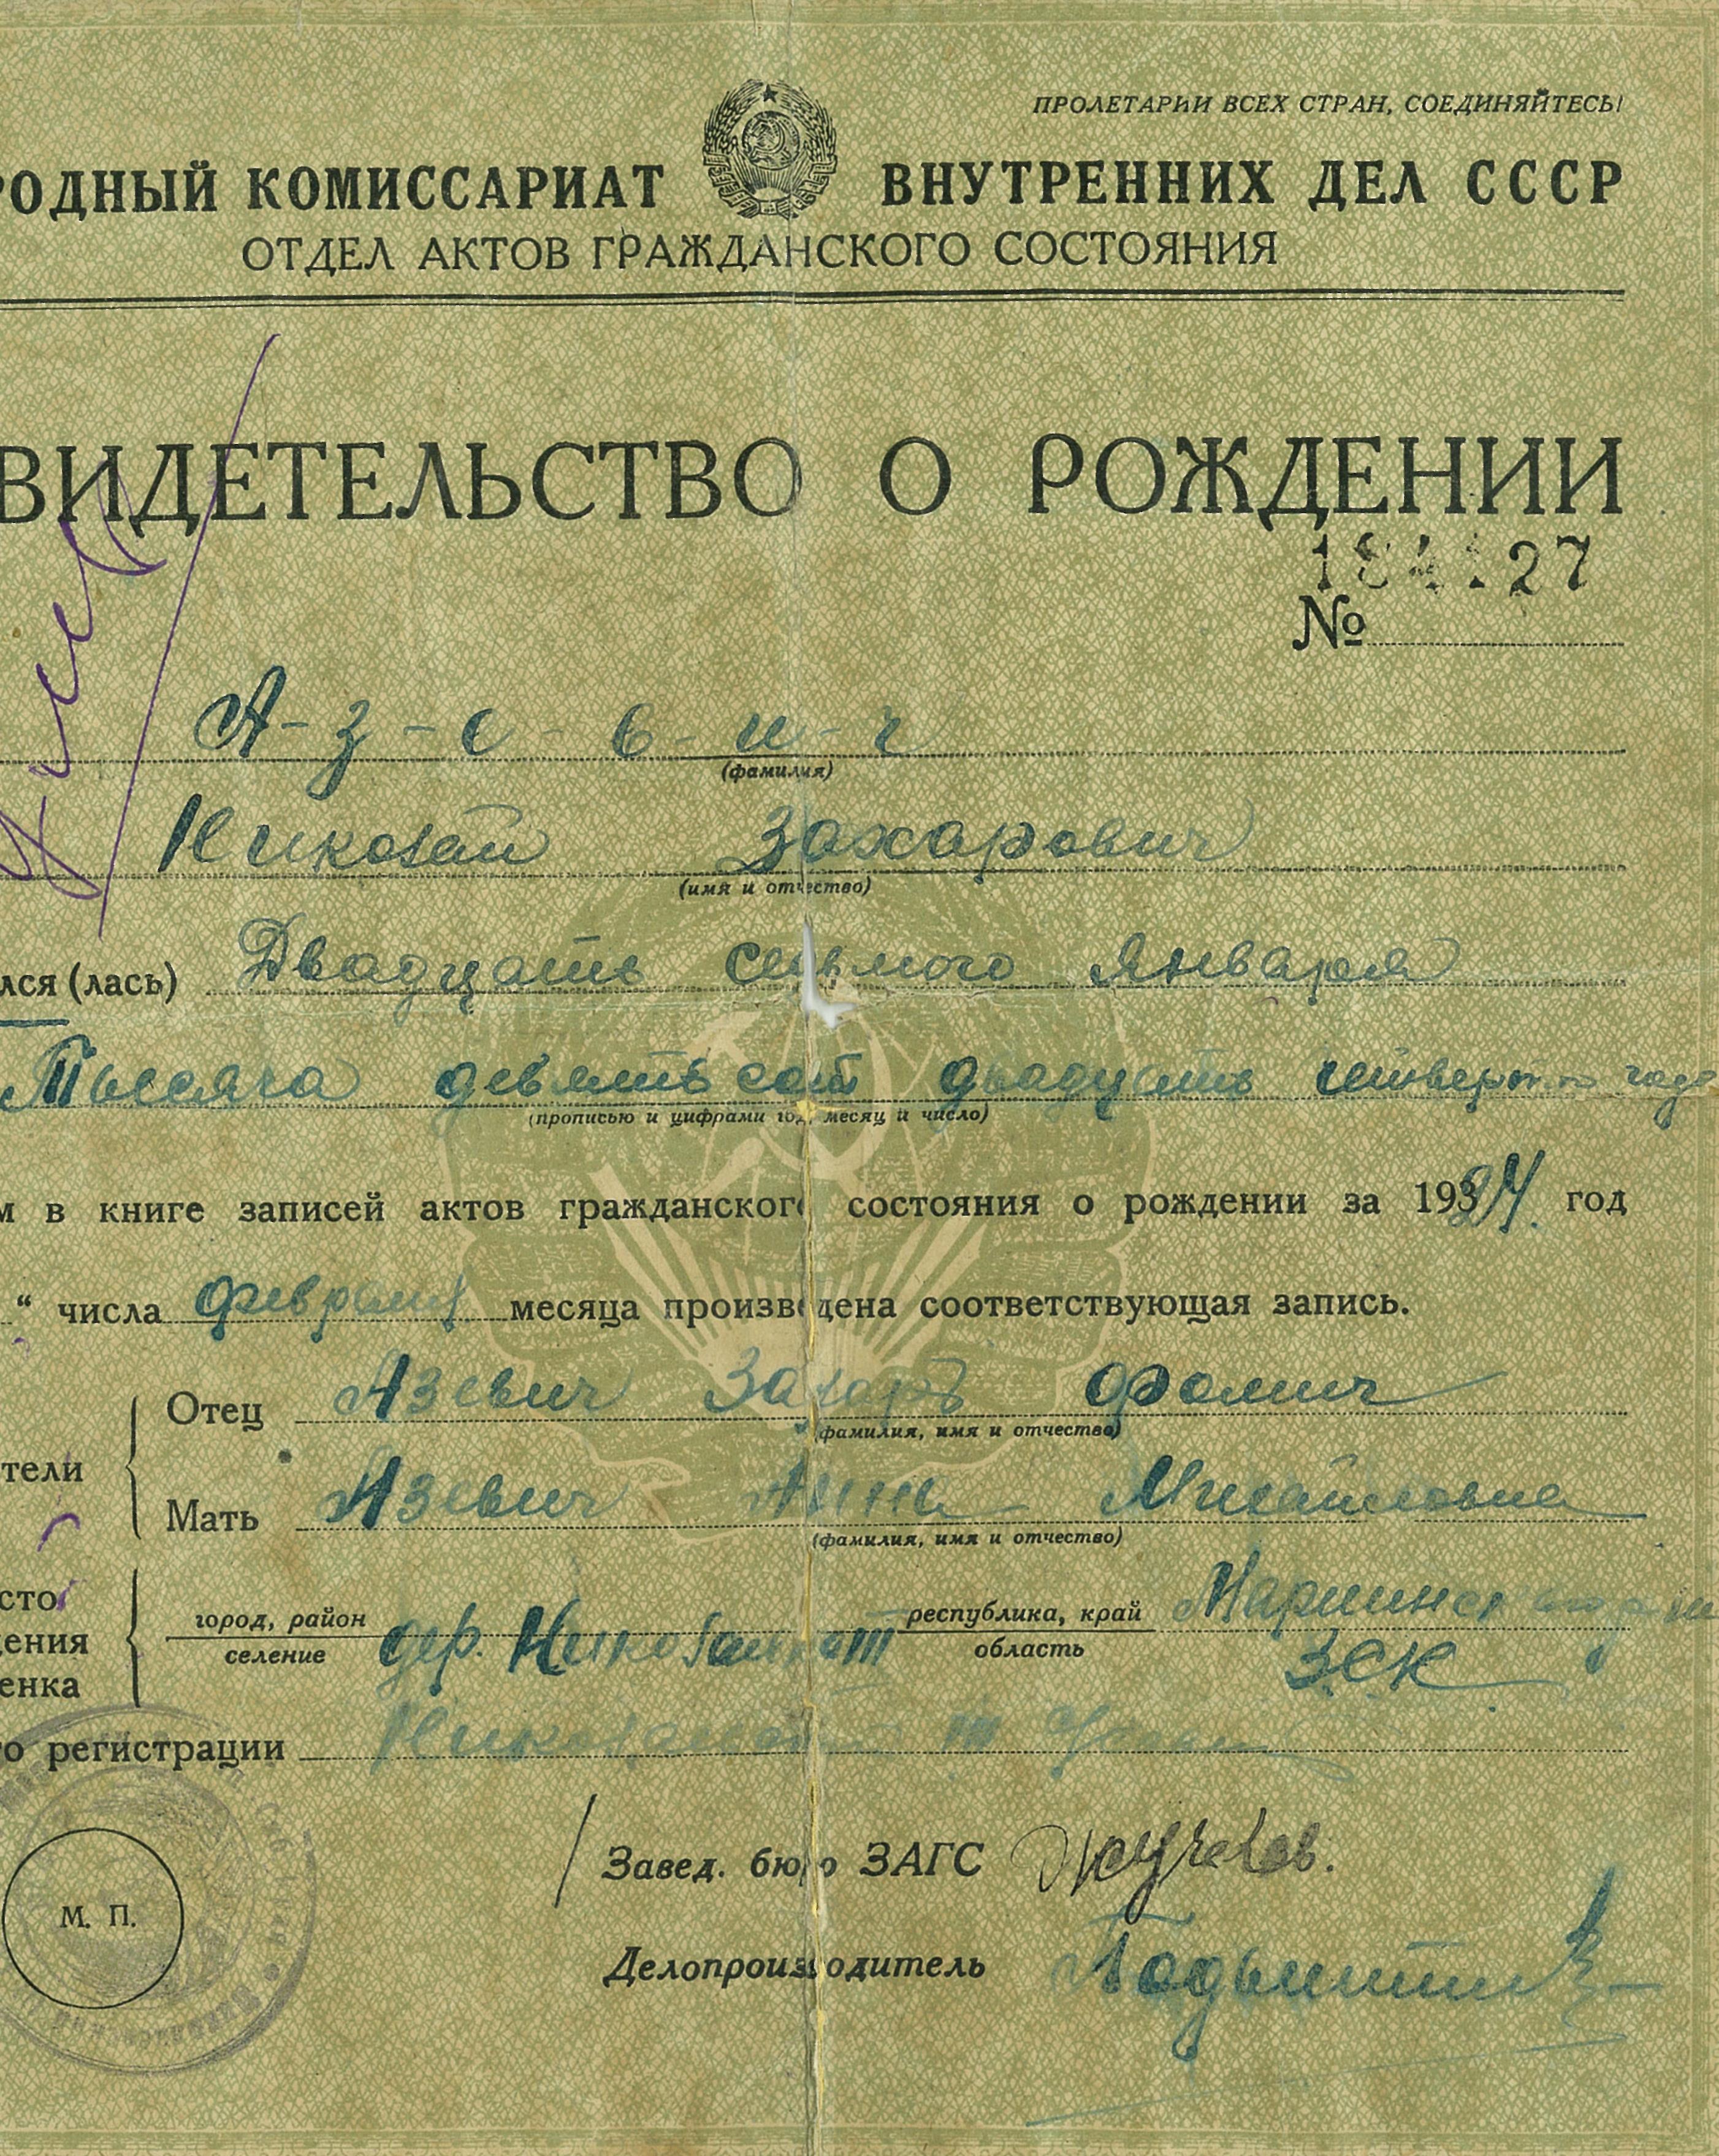 ПРОЛЕТАРИИ ВСЕХ СТРАН, СОЕДИНЯЙТЕСЬ!
РОДНЫЙ КОМИССАРИАТ ВНУТРЕННИХ ДЕЛ СССР
ОТДЕЛ АКТОВ ГРАЖДАНСКОГО СОСТОЯНИЯ
ВИДЕТЕЛЬСТВО О РОЖДЕНИИ
№
А-з-е-в-и-ч
(фамилия)
Николай Захарович
(имя и отчество)
лся (лась) Двадцать седьмого января
Тысяча девятьсот двадцать четвертого года
(прописью и цифрами год, месяц и число)
м в книге записей актов гражданского состояния о рождении за 1924 год
“ числа февраля месяца произведена соответствующая запись.
Отец Азевич Захаръ Фомич
(фамилия, имя и отчество)
тели
Мать Азевич Анна Михайловна
(фамилия, имя и отчество)
сто
дения
енка
город, район
селение
дер.
республика, край
область
ЗСК
о регистрации
М. П.
Завед. бюро ЗАГС
Делопроизводитель